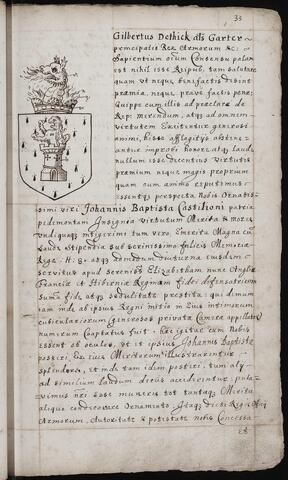 33
Gilbertus Dethick als Garter
principalis Rex Armorum &c:
Sapientium oīum Consensu palam
est nihil esse Reipub: tam salutare
quam ut neque benefactis desint
præmia, neque prave factis pœnæ
Quippe cum illis ad præclare de
Rep: merendum, atq ad omnem
virtutem Excitentur generosi
animi, his afflagitijs abstine=
antur improbi honores atq laude
nullum esse decentius virtutis
præmium neque magis proprium
quam cum animo reputemus
essentq perspecta Nobis Ornatis=
simi viri Johannis Baptista Castilioni patris
pedimontani Insignia virtutum Merita & mores
undiquaq integerrimi tum vero Emerita Magna cum
Laude Stipendia sub serinissimo felicis Memoriæ
Rege H: 8. atq demum diuturna eiusdem
servitus apud Serenissi Elizabetham nunc Angliæ
Franciæ et Hiberniæ Reginam fidei defensatricem
summa fide atq sedulitate prestita: qui demum
iam inde ab ipsius Regni initio in Eius intimorum
cubiculariorum generosos privatæ Cameræ appellatæ
numerum Cooptatus fuit. hæc igitur cum nobis
essent ob oculos, ut et ipsius Johannis Baptistæ
posteri, Ex eius Meritorum illustrarentur
splendore, et inde tam idem posteri, tum alij
ad similium laudum decus accederentur: puta=
vimus nri esse muneris tot tantaq Merita
aliquo condecorare Ornamento Itaq dicti Regis
Armorum, Autoritate & potestate nobis Concessa
&